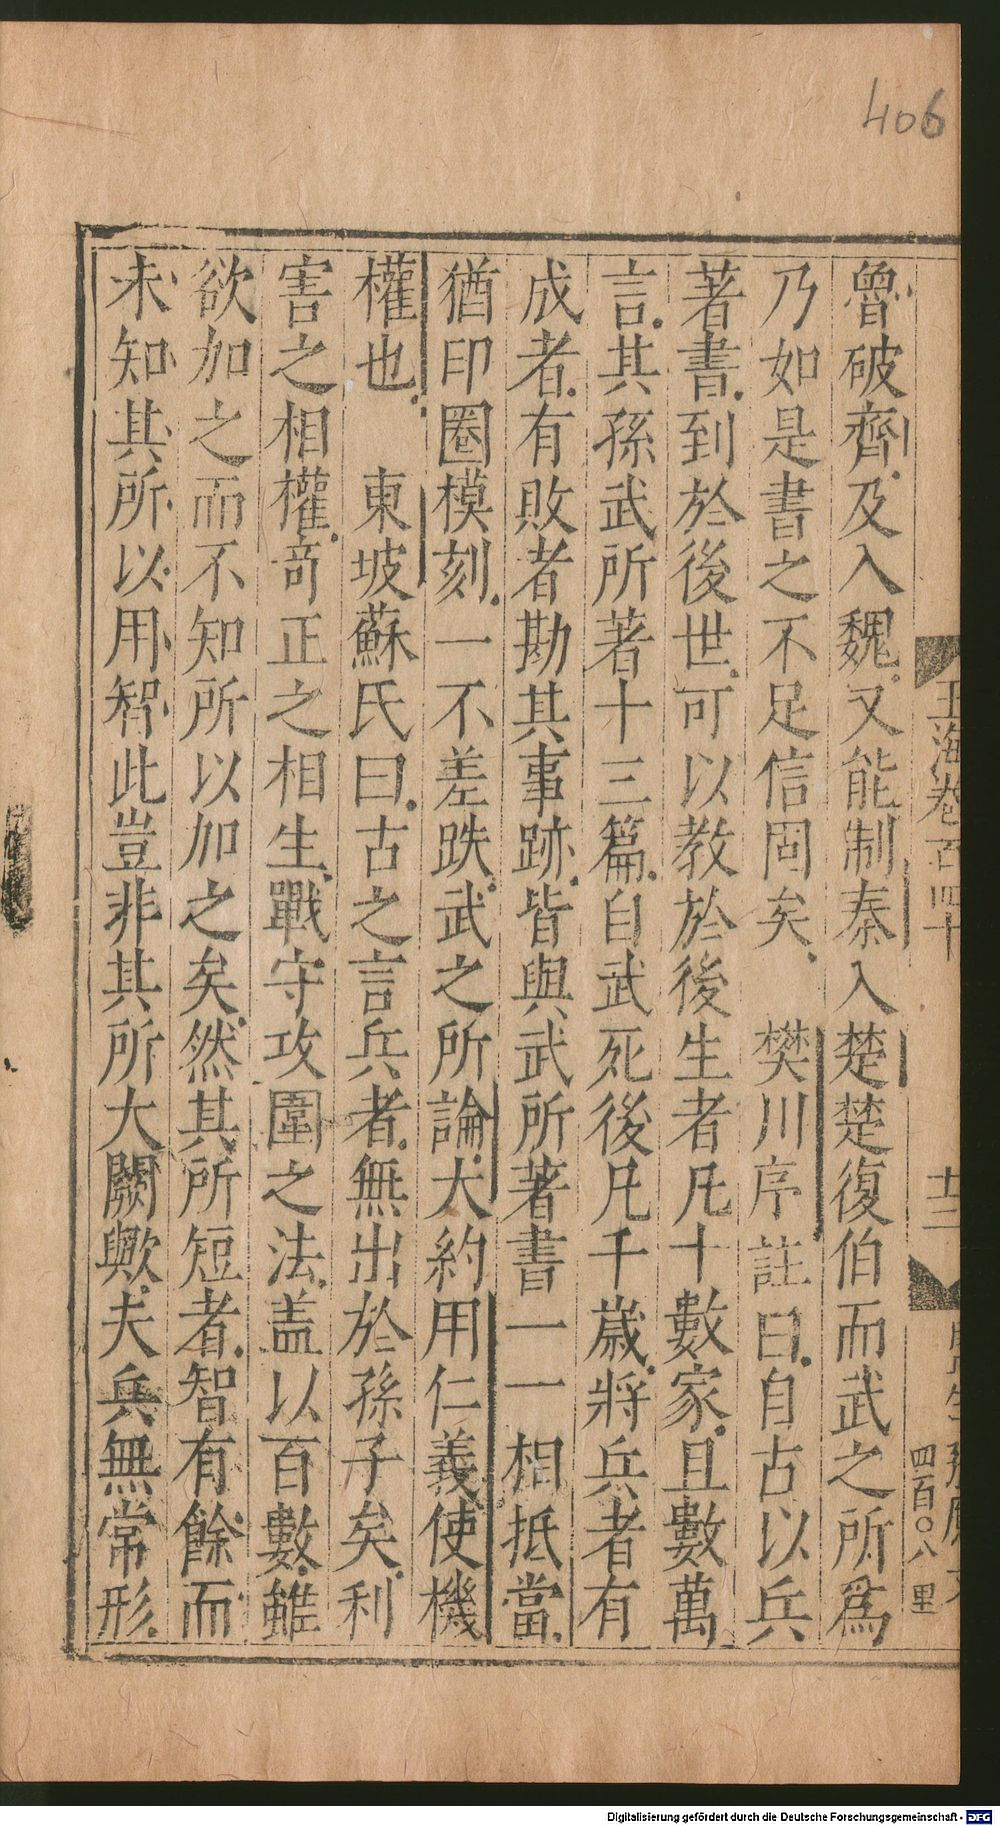 406
魯破齊及入魏又能制秦入楚楚復伯而武之所爲
乃如是書之不足信固矣　樊川序註曰自古以兵
著書到於後世可以教於後生者凡十數家且數萬
言其孫武所著十三篇自武死後凡千歲將兵者有
成者有敗者勘其事跡皆與武所著書一一相抵當
猶印圈模刻一不差跌武之所論大約用仁義使機
權也　東坡蘇氏曰古之言兵者無出於孫子矣利
害之相權竒正之相生戰守攻圍之法盖以百數雖
欲加之而不知所以加之矣然其所短者智有餘而
未知其所以用智此豈非其所大闕歟夫兵無常形
玉海卷百四十
十二
四百〇八
里
Digitalisierung gefördert durch die Deutsche Forschungsgemeinschaft - DFG